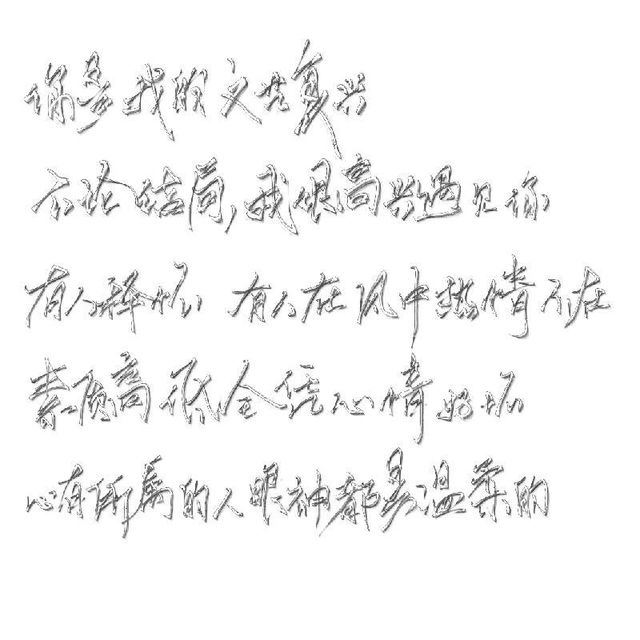 你是我的文艺复兴
不论结局,我很高兴遇见你
有人释怀 有人在风中热情不在
素质高低全凭心情好坏
心有所属的人眼神都是温柔的